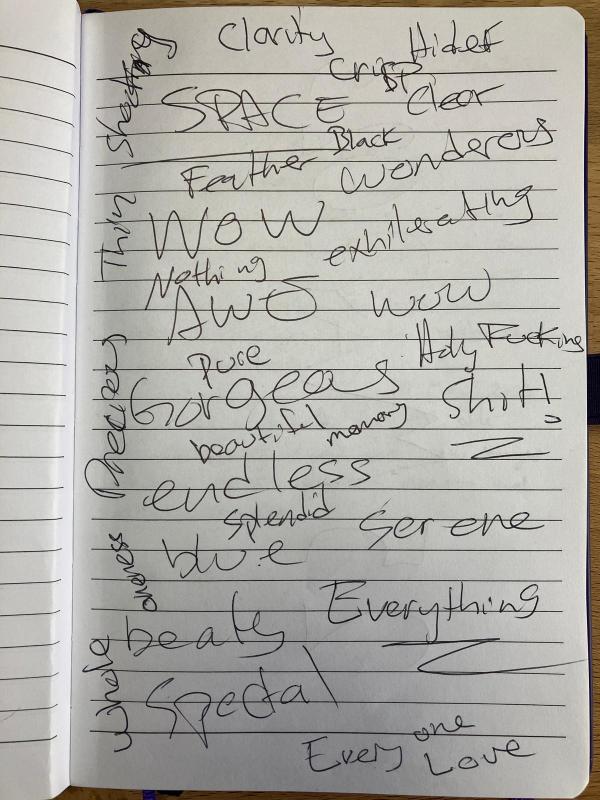 Clarity
Crisp
SPACE Clear
Black
Feather Wonderous
WOW exhilerating
Nothing
AWE WOW
Pure Holy Fucking
Gorgeous Shit!
beautiful memory
endless
Splendid Serene
blue
Everything
beauty
Special
Every one
Love
Precious
oneness
Whole